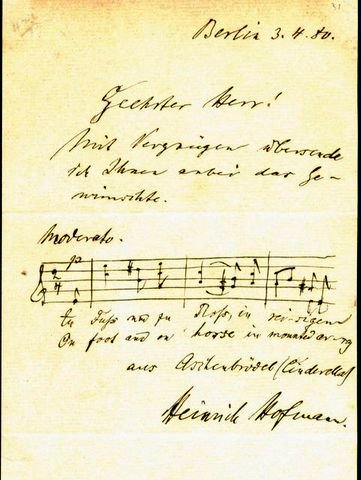 Berlin 3. 4. 80.
Geehrter Herr!
Mit Vergnügen übersende
ich Ihnen anbei das Ge-
wünschte.
Moderato.
p
2
4
zu Fuss und zu Ross, in
On foot and on horse in mounted
aus Aschenbrödel (Cinderella)
Heinrich Hofmann.